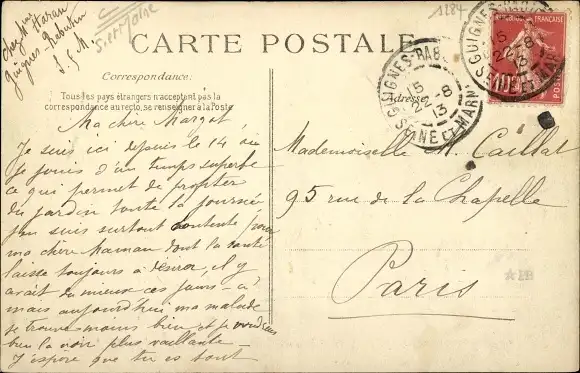 chez Mme Haran
Guignes-Rabutin
S. et M.
S. et Marne
1284
CARTE POSTALE
Correspondance:
Tous les pays étrangers n'acceptent pas la
correspondance au recto, se renseigner à la Poste
Adresse
GUIGNES-RABUTIN
15
22-8
13
SEINE ET MARNE
GUIGNES-RABUTIN
15
22-8
13
SEINE ET MARNE
FRANÇAISE
POSTES
Ma chère Margot,
Je suis ici depuis le 14 où
je jouis d'un temps superbe
ce qui permet de profiter
du jardin toute la journée
j'en suis surtout contente pour
ma chère Maman dont la santé
laisse toujours à désirer, il y
avait du mieux ces jours-ci
mais aujourd'hui ma malade
se trouve moins bien et je voudrais
bien la voir plus vaillante -
J'espère que tu es tout
Mademoiselle M. Caillat
95 rue de la Chapelle
Paris